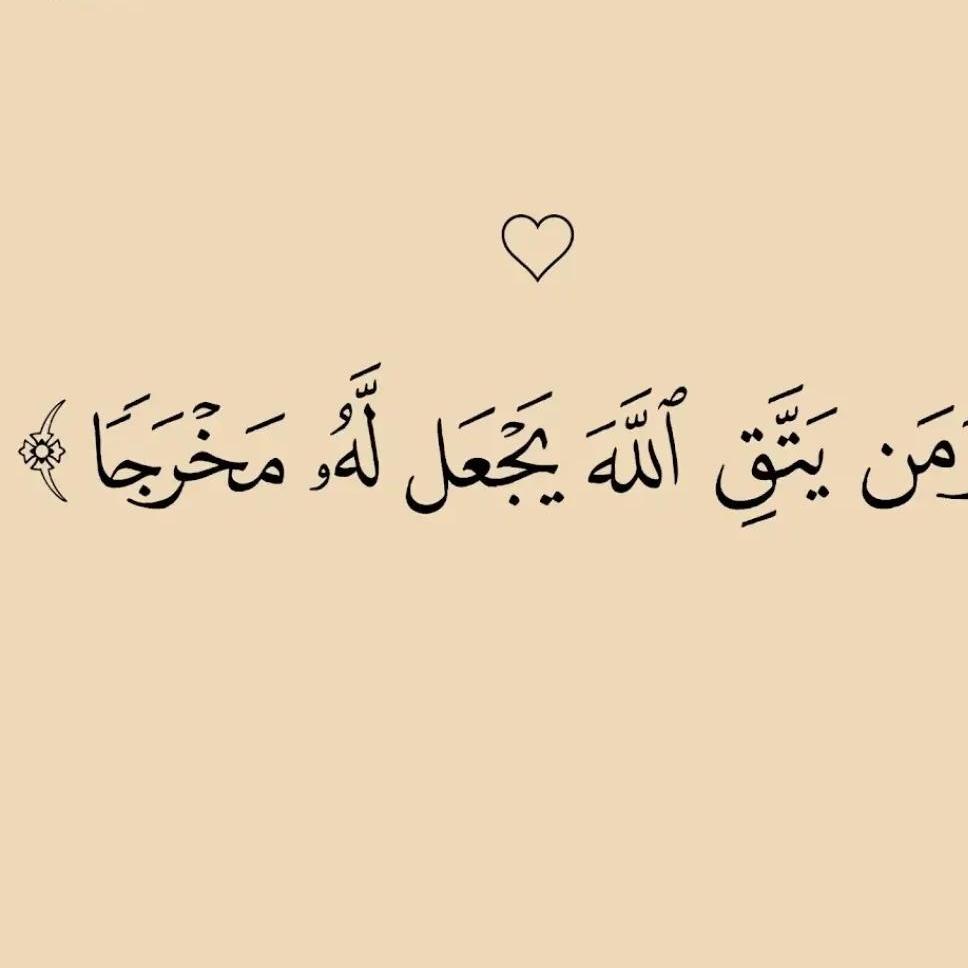 وَمَن يَتَّقِ ٱللَّهَ يَجْعَل لَّهُۥ مَخْرَجًا ﴾